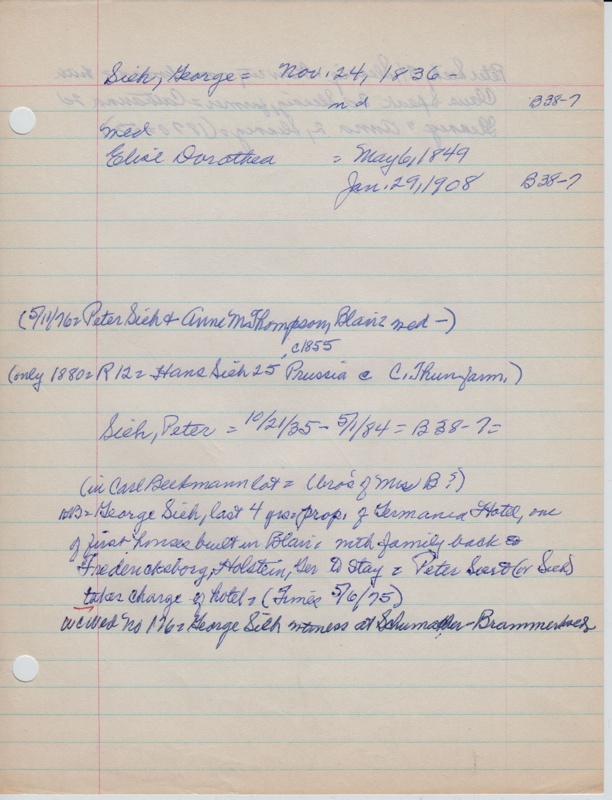 Sieh, George = Nov. 24, 1836 -
nd B38-7
med
Elise Dorothea = May 6, 1849
Jan. 29, 1908 B38-7
(5/11/76 = Peter Sieh + Anne M. Thompson, Blair = med -)
c1855
(only 1880 = R12 = Hans Sieh 25 Prussia c C. Thun farm.)
Sieh, Peter = 10/21/35 - 5/1/84 = B38-7 =
(in Carl Beckmann lot = (bro's of Mrs B?)
= George Sieh, last 4 yrs = prop. of Germania Hotel, one
of first houses built in Blair, with family back to
Fredericksborg, Holstein, Ger to stay = Peter (or Sieh)
takes charge of hotel = (Times 5/6/75)
No 176 = George Sieh witness at